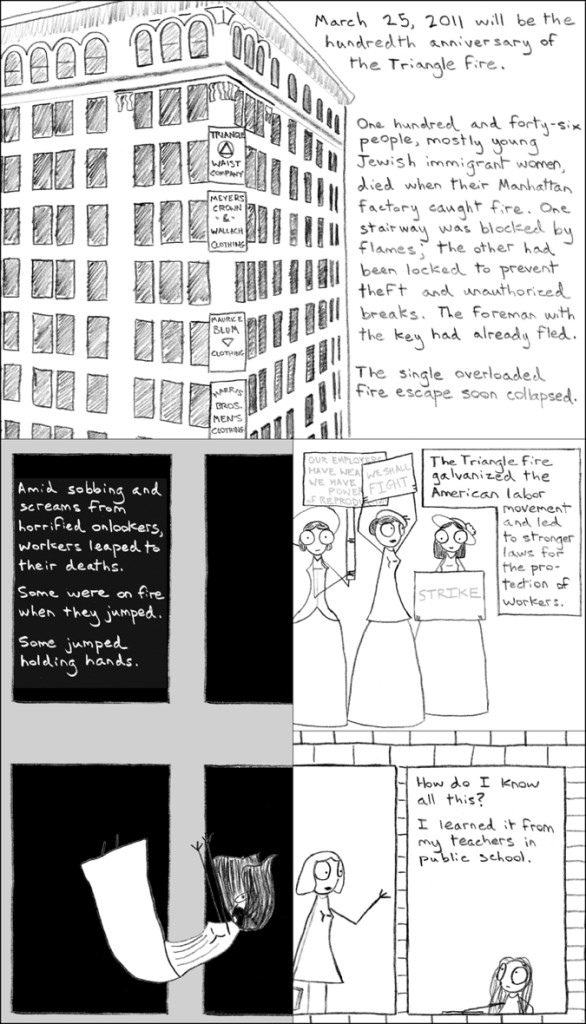 March 25, 2011 will be the
hundredth anniversary of
the Triangle Fire.
One hundred and forty-six
people, mostly young
Jewish immigrant women,
died when their Manhattan
factory caught fire. One
stairway was blocked by
flames; the other had
been locked to prevent
theft and unauthorized
breaks. The foreman with
the key had already fled.
The single overloaded
fire escape soon collapsed.
TRIANGLE
WAIST
COMPANY
MEYERS
CROWN
-&-
WALLACH
CLOTHING
MAURICE
BLUM
CLOTHING
HARRIS
BROS.
MEN'S
CLOTHING
Amid sobbing and
screams from
horrified onlookers,
workers leaped to
their deaths.
Some were on fire
when they jumped.
Some jumped
holding hands.
OUR EMPLOYERS
HAVE WEA
WE HAVE
POWER
of REPRODU
WE SHALL
FIGHT
STRIKE
The Triangle fire
galvanized the
American labor
movement
and led
to stronger
laws for
the pro-
tection of
workers.
How do I know
all this?
I learned it from
my teachers in
public school.